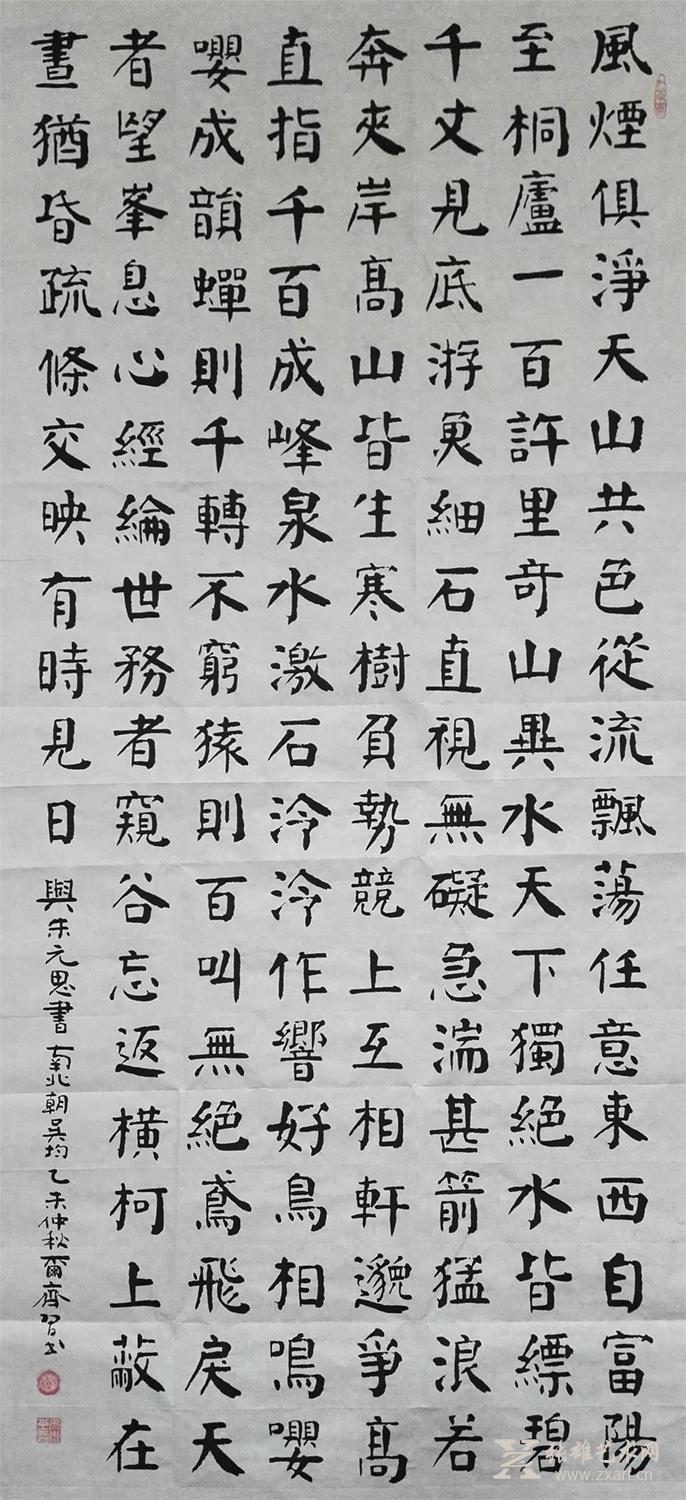 風煙俱淨天山共色從流飄蕩任意東西自富陽
至桐廬一百許里奇山異水天下獨絕水皆縹碧
千丈見底游魚細石直視無礙急湍甚箭猛浪若
奔夾岸高山皆生寒樹負勢競上互相軒邈爭高
直指千百成峰泉水激石泠泠作響好鳥相鳴嚶
嚶成韻蟬則千轉不窮猿則百叫無絕鳶飛戾天
者望峯息心經綸世務者窺谷忘返橫柯上蔽在
晝猶昏疏條交映有時見日
與朱元思書南北朝吳均乙未仲秋爾齊習書
www.zxart.cn